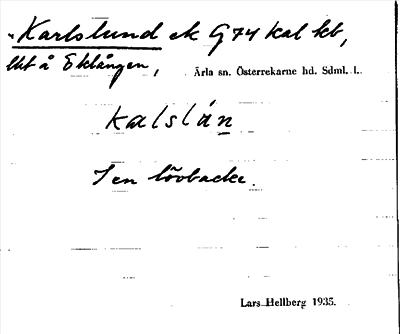 Karlslund ek G74 kal kt,
lht å Eklången,
Ärla sn. Österrekarne hd. Sdml. l.
kalslán
I en lövbacke.
Lars Hellberg 1935.